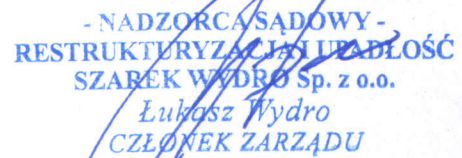 - NADZORCA SĄDOWY -
RESTRUKTURYZACJA I UPADŁOŚĆ
SZAREK WYDRO Sp. z o.o.
Łukasz Wydro
CZŁONEK ZARZĄDU